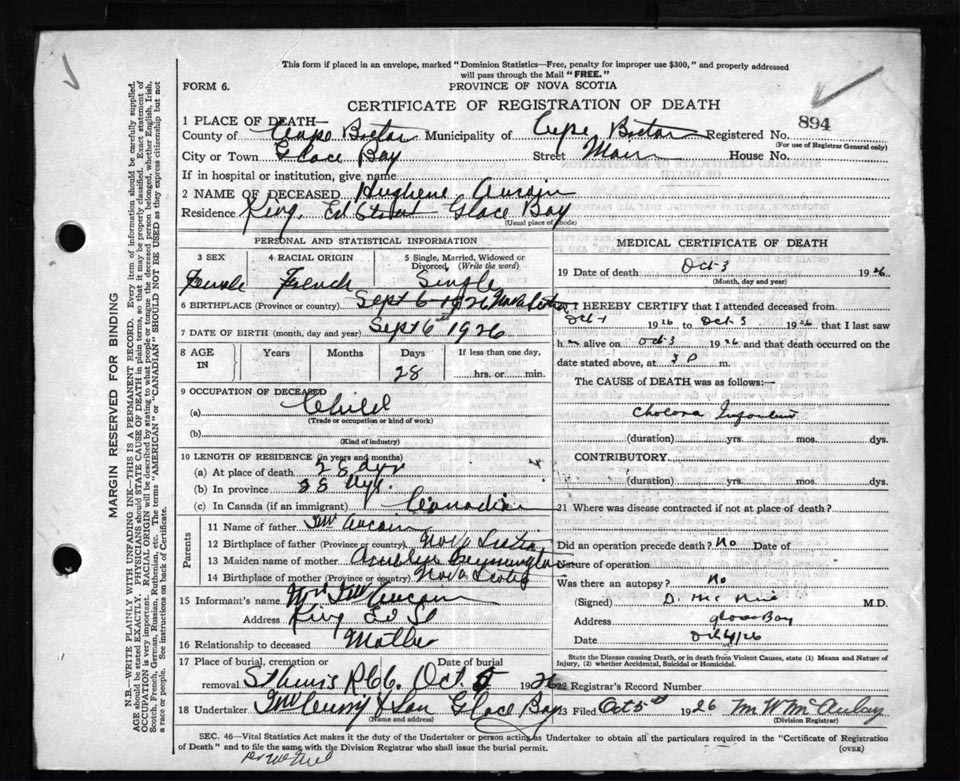 This form if placed in an envelope, marked "Dominion Statistics—Free, penalty for improper use $300," and properly addressed
will pass through the Mail "FREE."
FORM 6.
PROVINCE OF NOVA SCOTIA
CERTIFICATE OF REGISTRATION OF DEATH
1 PLACE OF DEATH—
County of Cape Breton Municipality of Cape Breton Registered No. 894
(For use of Registrar General only)
City or Town Glace Bay Street Main House No.
If in hospital or institution, give name
2 NAME OF DECEASED Hughene Aucoin
Residence King Ed Street Glace Bay
(Usual place of abode)
PERSONAL AND STATISTICAL INFORMATION
3 SEX 4 RACIAL ORIGIN 5 Single, Married, Widowed or Divorced, (Write the word)
Female French Single
6 BIRTHPLACE (Province or country) Sept 6-1926 Nova Scotia
7 DATE OF BIRTH (month, day and year) Sept 6th 1926
8 AGE IN Years Months Days If less than one day,
28 hrs. or min.
9 OCCUPATION OF DECEASED
(a) Child
(Trade or occupation or kind of work)
(b)
(Kind of industry)
10 LENGTH OF RESIDENCE (in years and months)
(a) At place of death 28 dys
(b) In province 28 dys.
(c) In Canada (if an immigrant) Canadian
Parents
11 Name of father Aucoin
12 Birthplace of father (Province or country) Nova Scotia
13 Maiden name of mother
14 Birthplace of mother (Province or country) Nova Scotia
15 Informant's name Mrs Aucoin
Address King Ed St
16 Relationship to deceased Mother
17 Place of burial, cremation or Date of burial
removal. R.C.C. Oct 5 1926
18 Undertaker Curry & Son Glace Bay
(Name and address)
MEDICAL CERTIFICATE OF DEATH
19 Date of death Oct-3 1926.
(Month, day and year)
I HEREBY CERTIFY that I attended deceased from
Oct-1 1926 to Oct 3 1926 that I last saw
h alive on Oct-3 1926 and that death occurred on the
date stated above, at 3 P m.
The CAUSE OF DEATH was as follows:—
Cholera Infantum
(duration) yrs. mos. dys.
CONTRIBUTORY.
(duration) yrs. mos. dys.
21 Where was disease contracted if not at place of death?
Did an operation precede death? No Date of
Nature of operation
Was there an autopsy? No
(Signed) D. M.D.
Address Glace Bay
Date Oct 4/26
State the Disease causing Death, or in death from Violent Causes, state (1) Means and Nature of
Injury, (2) whether Accidental, Suicidal or Homicidal.
22 Registrar's Record Number
23 Filed Oct 5th 1926 M W McAulay
(Division Registrar)
SEC. 46—Vital Statistics Act makes it the duty of the Undertaker or person acting as Undertaker to obtain all the particulars required in the "Certificate of Registration
of Death" and to file the same with the Division Registrar who shall issue the burial permit. (OVER)
MARGIN RESERVED FOR BINDING
N.B.—WRITE PLAINLY WITH UNFADING INK—THIS IS A PERMANENT RECORD. Every item of information should be carefully supplied.
AGE should be stated EXACTLY. PHYSICIANS should STATE CAUSE OF DEATH in plain terms, so that it may be properly classified. Exact statement of
OCCUPATION is very important. RACIAL ORIGIN will be described by stating to what people or tongue the deceased person belonged, whether English, Irish,
Scotch, French, German, Russian, Ruthenian, etc. The terms "AMERICAN" or "CANADIAN" SHOULD NOT BE USED as they express citizenship but not
a race or people. See instructions on back of Certificate.